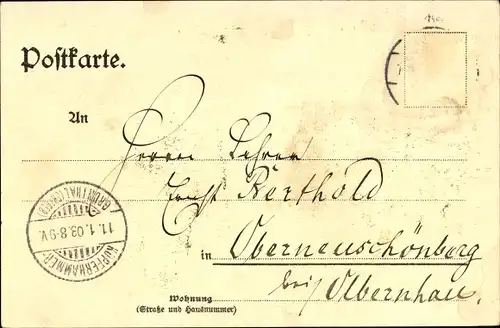 Postkarte.
An
Herrn Lehrer
Ernst Berthold
in Oberneuschönberg
bei Olbernhau.
Wohnung
(Straße und Hausnummer)
KUPFERHAMMER
11.1.03.8-9V.
GRÜNTHAL